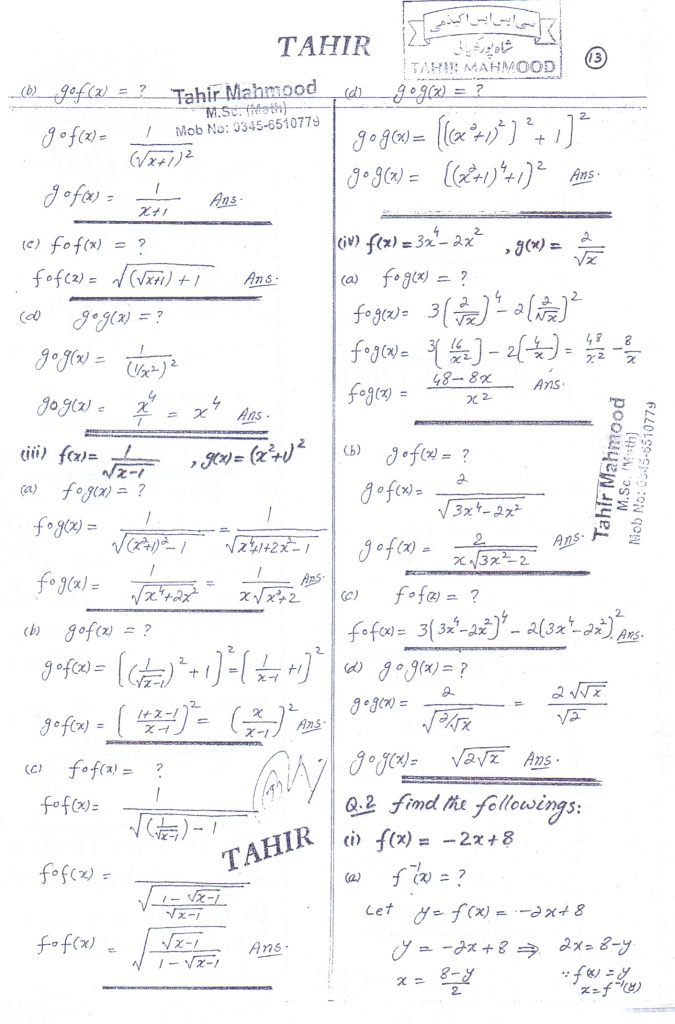 TAHIR
سی ایس ایس اکیڈمی
TAHIR MAHMOOD
13
(b) gof(x) = ?
Tahir Mahmood
M.Sc. (Math)
Mob No: 0345-6510779
gof(x) = 1/(√x+1)²
gof(x) = 1/x+1 Ans.
(c) fof(x) = ?
fof(x) = √(√x+1) + 1 Ans.
(d) gog(x) = ?
gog(x) = 1/(1/x²)²
gog(x) = x⁴/1 = x⁴ Ans.
(iii) f(x) = 1/√x-1 , g(x) = (x²+1)²
(a) fog(x) = ?
fog(x) = 1/√(x²+1)²-1 = 1/√x⁴+1+2x²-1
fog(x) = 1/√x⁴+2x² = 1/x√x²+2 Ans.
(b) gof(x) = ?
gof(x) = [(1/√x-1)² + 1]² = [1/x-1 + 1]²
gof(x) = (1+x-1/x-1)² = (x/x-1)² Ans.
(c) fof(x) = ?
fof(x) = 1/√(1/√x-1) - 1
TAHIR
fof(x) = √1-√x-1/√x-1
fof(x) = √√x-1/1-√x-1 Ans.
(d) gog(x) = ?
gog(x) = [((x²+1)²)² + 1]²
gog(x) = [(x²+1)⁴+1]² Ans.
(iv) f(x) = 3x⁴ - 2x² , g(x) = 2/√x
(a) fog(x) = ?
fog(x) = 3(2/√x)⁴ - 2(2/√x)²
fog(x) = 3(16/x²) - 2(4/x) = 48/x² - 8/x
fog(x) = 48-8x/x² Ans.
Tahir Mahmood
M.Sc. (Math)
Mob No: 0345-6510779
(b) gof(x) = ?
gof(x) = 2/√3x⁴-2x²
gof(x) = 2/x√3x²-2 Ans.
(c) fof(x) = ?
fof(x) = 3(3x⁴-2x²)⁴ - 2(3x⁴-2x²)² Ans.
(d) gog(x) = ?
gog(x) = 2/√2/√x = 2√√x/√2
gog(x) = √2√x Ans.
Q.2 find the followings:
(i) f(x) = -2x+8
(a) f⁻¹(x) = ?
Let y = f(x) = -2x+8
y = -2x+8 ⇒ 2x = 8-y
x = 8-y/2 ∵ f(x) = y
x = f⁻¹(y)